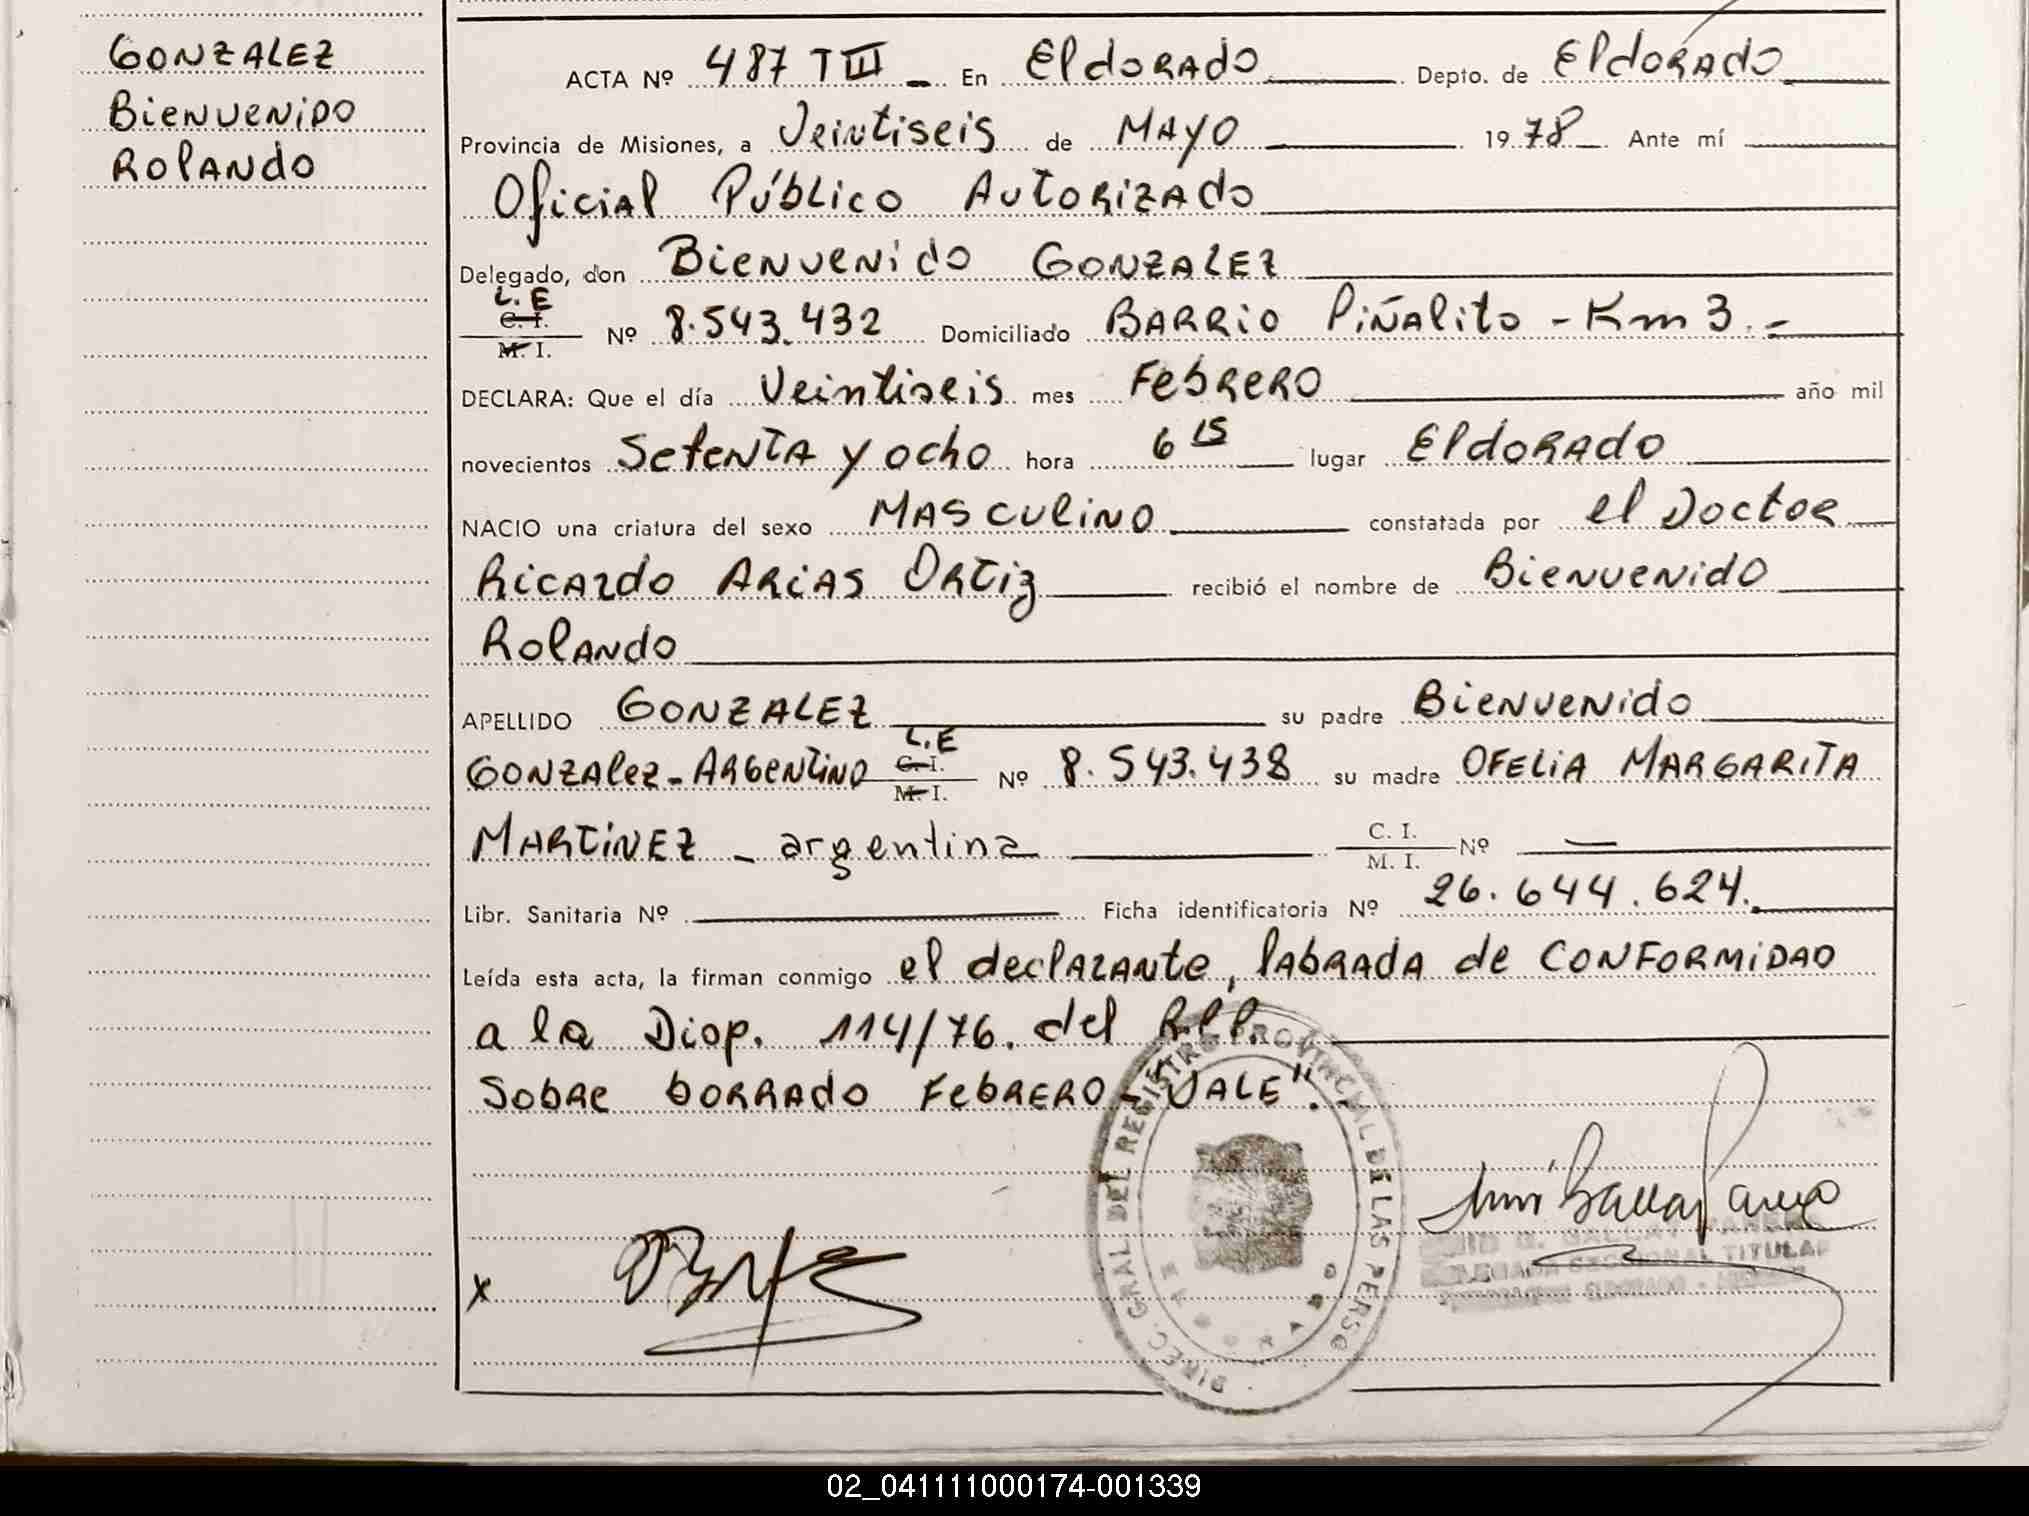 GONZALEZ
BienveniDO
Rolando
ACTA Nº 487 T III En Eldorado Depto. de Eldorado
Provincia de Misiones, a Veintiseis de Mayo 1978 Ante mí
Oficial Público Autorizado
Delegado, don Bienvenido Gonzalez
L.E
C. I.
M. I. Nº 8.543.432 Domiciliado Barrio Piñalito - Km 3.-
DECLARA: Que el día Veintiseis mes Febrero año mil
novecientos Setenta y ocho hora 6 15 lugar Eldorado
NACIO una criatura del sexo Masculino constatada por el Doctor
Ricardo Arias Ortiz recibió el nombre de Bienvenido
Rolando
APELLIDO GONZALEZ su padre Bienvenido
L.E
Gonzalez - Argentino C. I. M. I. Nº 8.543.438 su madre OFELIA MARGARITA
MARTINEZ - argentina C. I. M. I. Nº —
Libr. Sanitaria Nº Ficha identificatoria Nº 26.644.624.
Leída esta acta, la firman conmigo el declarante, labrada de CONFORMIDAD
a la Disp. 114/76. del R.P.P.
Sobre borrado Febrero - "VALE".
DIREC. GRAL DEL REGISTRO PROVINCIAL DE LAS PERSO
x
SECCIONAL TITULAR
02_041111000174-001339